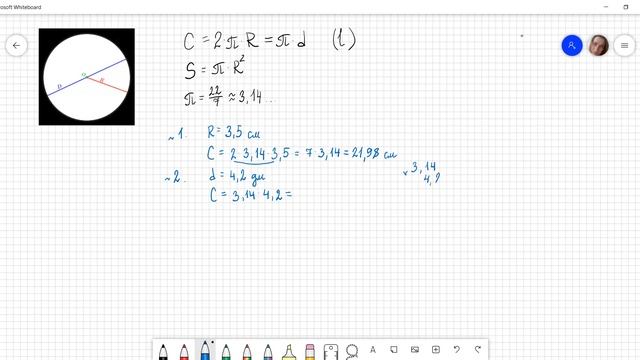 Microsoft Whiteboard
C = 2·π·R = π·d (l)
S = π·R²
π = 22/7 ≈ 3,14...
~1. R = 3,5 см
C = 2·3,14·3,5 = 7·3,14 = 21,98 см
~2. d = 4,2 дм
C = 3,14·4,2 =
× 3,14
4,2
D
R